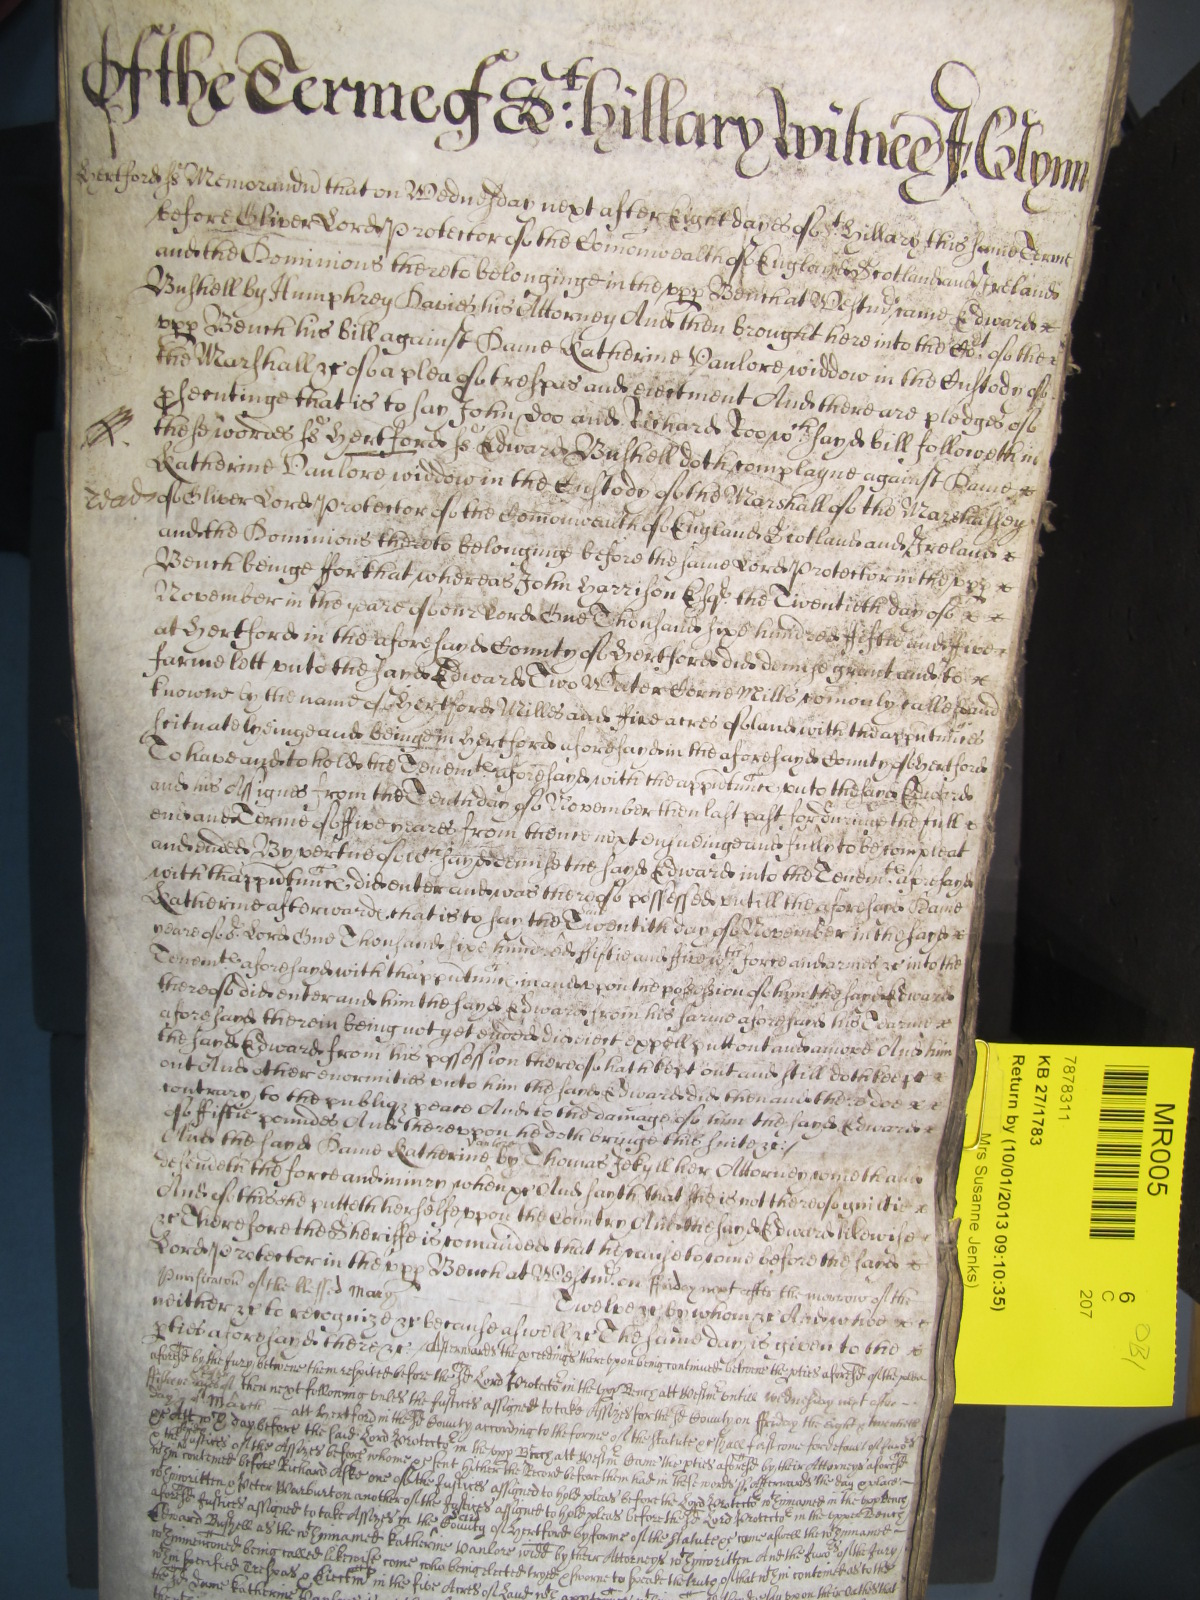 Of the Terme of St: Hillary Witnes J. Glynn
Hertford ss Memorandū that on Wednesday next after Eight dayes of St. Hillary this same Terme
before Oliver Lord Protector of the Comonwealth of England Scotland and Ireland
and the Dominions thereto belonginge in the upp Bench at Westm̄ came Edward
Bushell by Humphrey Davies his Attorney And then brought here into the Cort of the
upp Bench his bill against Dame Katherine Vanlore widdow in the Custody of
the Marshall &c of a plea of trespas and eiectment And there are pledges of
p̱secutinge that is to say John Doo and Richard Roo wch sayd bill followeth in
these wordes ss Hertford ss Edward Bushell doth complayne against Dame
Katherine Vanlore widdow in the Custody of the Marshall of the Marshallsey
read of Oliver Lord Protector of the Comonwealth of England Scotland and Ireland
and the Dominions thereto belonginge before the same Lord Protector in the upp
Bench beinge For that whereas John Harrison Esqr. the Twentieth day of
November in the yeare of our Lord One Thousand sixe hundred fiftie and five
at Hertford in the aforesayd County of Hertford did demise grant and to
farme lett unto the sayd Edward Two Water Corne Mills comonly called and
knowne by the name of Hertford Milles and five acres of land with thapputnᵃnces
scituate lyeinge and beinge in Hertford aforesayd in the aforesayd County of Hertford
To have and to hold the Tenemts aforesayd with the apputnᵃnces unto the sayd Edward
and his Assignes from the Tenth day of November then last past for duringe the full
end and Terme of five yeares from thence next ensueinge and fully to be compleat
and ended By vertue of wch sayd demise the sayd Edward into the Tenemts aforesayd
with thapputnᵃnces did enter and was thereof possessed untill the aforesayd Dame
Katherine afterwards that is to say the Twentieth day of November in the sayd
yeare of or Lord One Thousand sixe hundred fiftie and five wth force and armes &c into the
Tenemts aforesayd with thapputnᵃnces in and upon the possession of him the sayd Edward
thereof did enter and him the sayd Edward from his farme aforesayd his Tearme
aforesayd therein being not yet ended did eiect expell putt out and amove And him
the sayd Edward from his possession thereof hath kept out and still doth keepe
out And other enormities unto him the sayd Edward did then and there doe
contrary to the publiq peace And to the damage of him the sayd Edward
of Fiftie poundes And thereupon he doth bringe this suite &c/
And the sayd Dame Katherine Vanlore by Thomas Jekyll her Attorney come and
defendeth the force and iniury when &c And sayth that she is not thereof guiltie
And of this she putteth herselfe upon the Country And the sayd Edward likewise
&c Therefore the Sheriffe is comanded that he cause to come before the sayd
Lord Protector in the upp Bench at Westmr. on Friday next after the morrow of the
Purificacon of the blessed Mary Twelve &c by whom &c And who
neither &c to recognize &c because aswell &c The same day is given to the
pties aforesayd there &c Afterwards the proceedings thereupon being continued betweene the pties aforesd of the plea
aforesd by the Jury betweene them respited before the sd Lord Protector in the upp Bench att Westmr untill Wednesday next after
then next following unles the Justices assigned to take Assizes for the sd County on Friday the Eight & twentieth
day of March att Hertford in the sd County according to the forme of the Statute &c shall first come for default of Jurors
&c Att wch day before the said Lord Protector in the upp Bench att Westmr came the pties aforesd by their Attorneys aforesd
& the Justices of the Assizes before whome &c sent hither the Record before them had in these words ss Afterwards the day & place
wthin conteined before Richard Aske one of the Justices assigned to hold pleas before the Lord Protector wthinnamed in the upp Bench
wthinwritten & Peter Warburton another of the Justices assigned to hold pleas before the sd Lord Protector in the upper Bench
aforesd Justices assigned to take Assizes in the County of Hertford by forme of the Statute &c come aswell the wthinnamed
Edward Bushell as the wthinnamed Katherine Vanlore widd by their Attorneys wthinwritten And the Jurors of the Jury
wthinmentioned being called likewise come who being elected tryed & sworne to speake the truth of that wthin conteined as to the
wthin specified Trespas & Eiectmt in the five Acres of Land wth
the sd Dame Katherine Vanlore is say upon their Oathes that
MR005
7878311
KB 27/1783
Return by (10/01/2013 09:10:35)
Mrs Susanne Jenks)
6
C
207